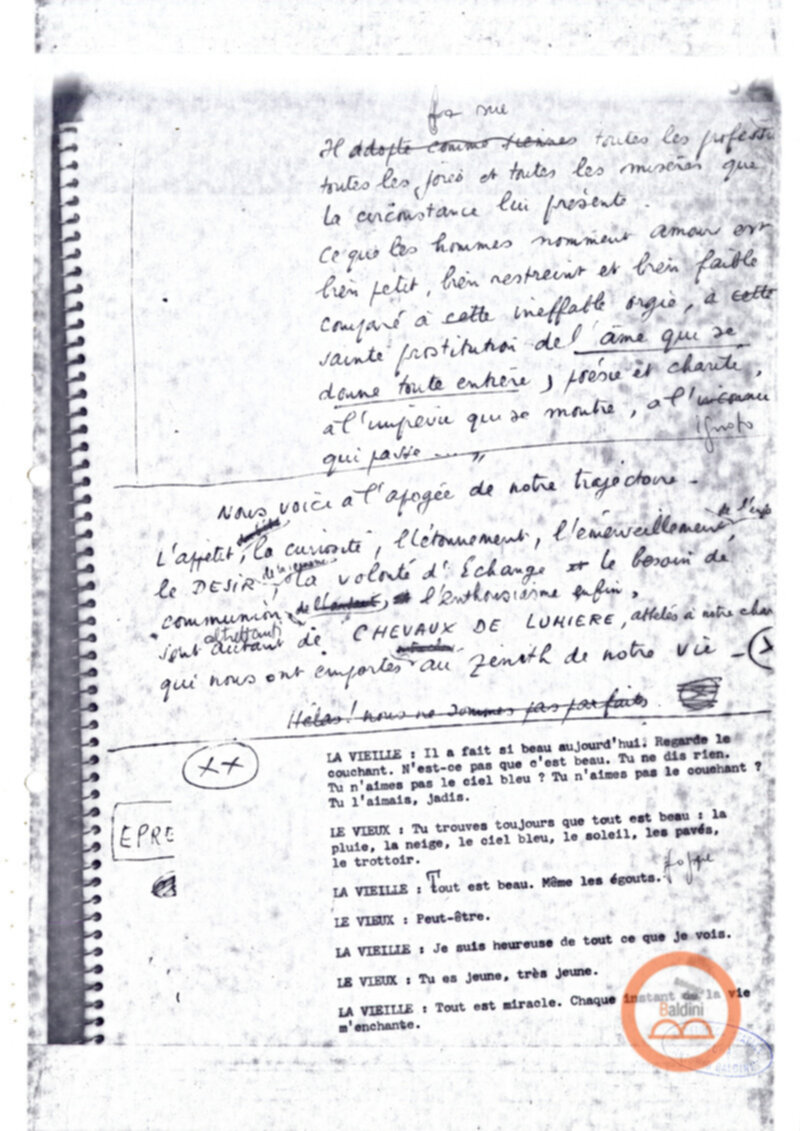 fa sue
Il adopte comme siennes toutes les professi
toutes les joies et toutes les misères que
la circonstance lui présente.
Ce que les hommes nomment amour est
bien petit, bien restreint et bien faible
comparé à cette ineffable orgie, à cette
sainte prostitution de l'âme qui se
donne toute entière, poésie et charité,
à l'imprévu qui se montre, à l'inconnu
ignoto
qui passe ...."
Nous voici à l'apogée de notre trajectoire -
L'appétit, la curiosité, l'étonnement, l'émerveillement
le DESIR, la volonté d'Échange et le besoin de
communion de l'autant, et l'enthousiasme enfin,
altrettanti
sont autant de CHEVAUX DE LUMIERE, attelés à notre char
qui nous ont emportés au zénith de notre vie -
Hélas! nous ne sommes pas parfaits
++
LA VIEILLE : Il a fait si beau aujourd'hui. Regarde le
couchant. N'est-ce pas que c'est beau. Tu ne dis rien.
Tu n'aimes pas le ciel bleu ? Tu n'aimes pas le couchant ?
Tu l'aimais, jadis.
EPRE
LE VIEUX : Tu trouves toujours que tout est beau : la
pluie, la neige, le ciel bleu, le soleil, les pavés,
le trottoir.
LA VIEILLE : Tout est beau. Même les égouts. fogne
LE VIEUX : Peut-être.
LA VIEILLE : Je suis heureuse de tout ce que je vois.
LE VIEUX : Tu es jeune, très jeune.
LA VIEILLE : Tout est miracle. Chaque instant de la vie
m'enchante.
Baldini